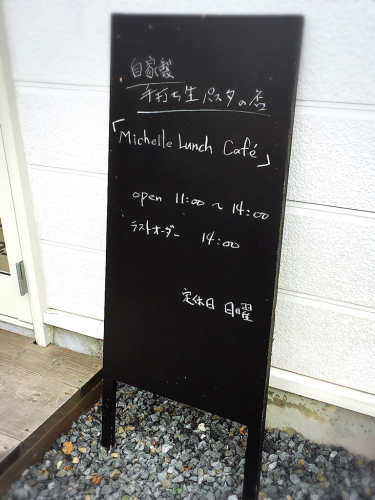 自家製
手打ち生パスタの店
「Michelle Lunch Café」
open 11:00 〜 14:00
ラストオーダー 14:00
定休日 日曜